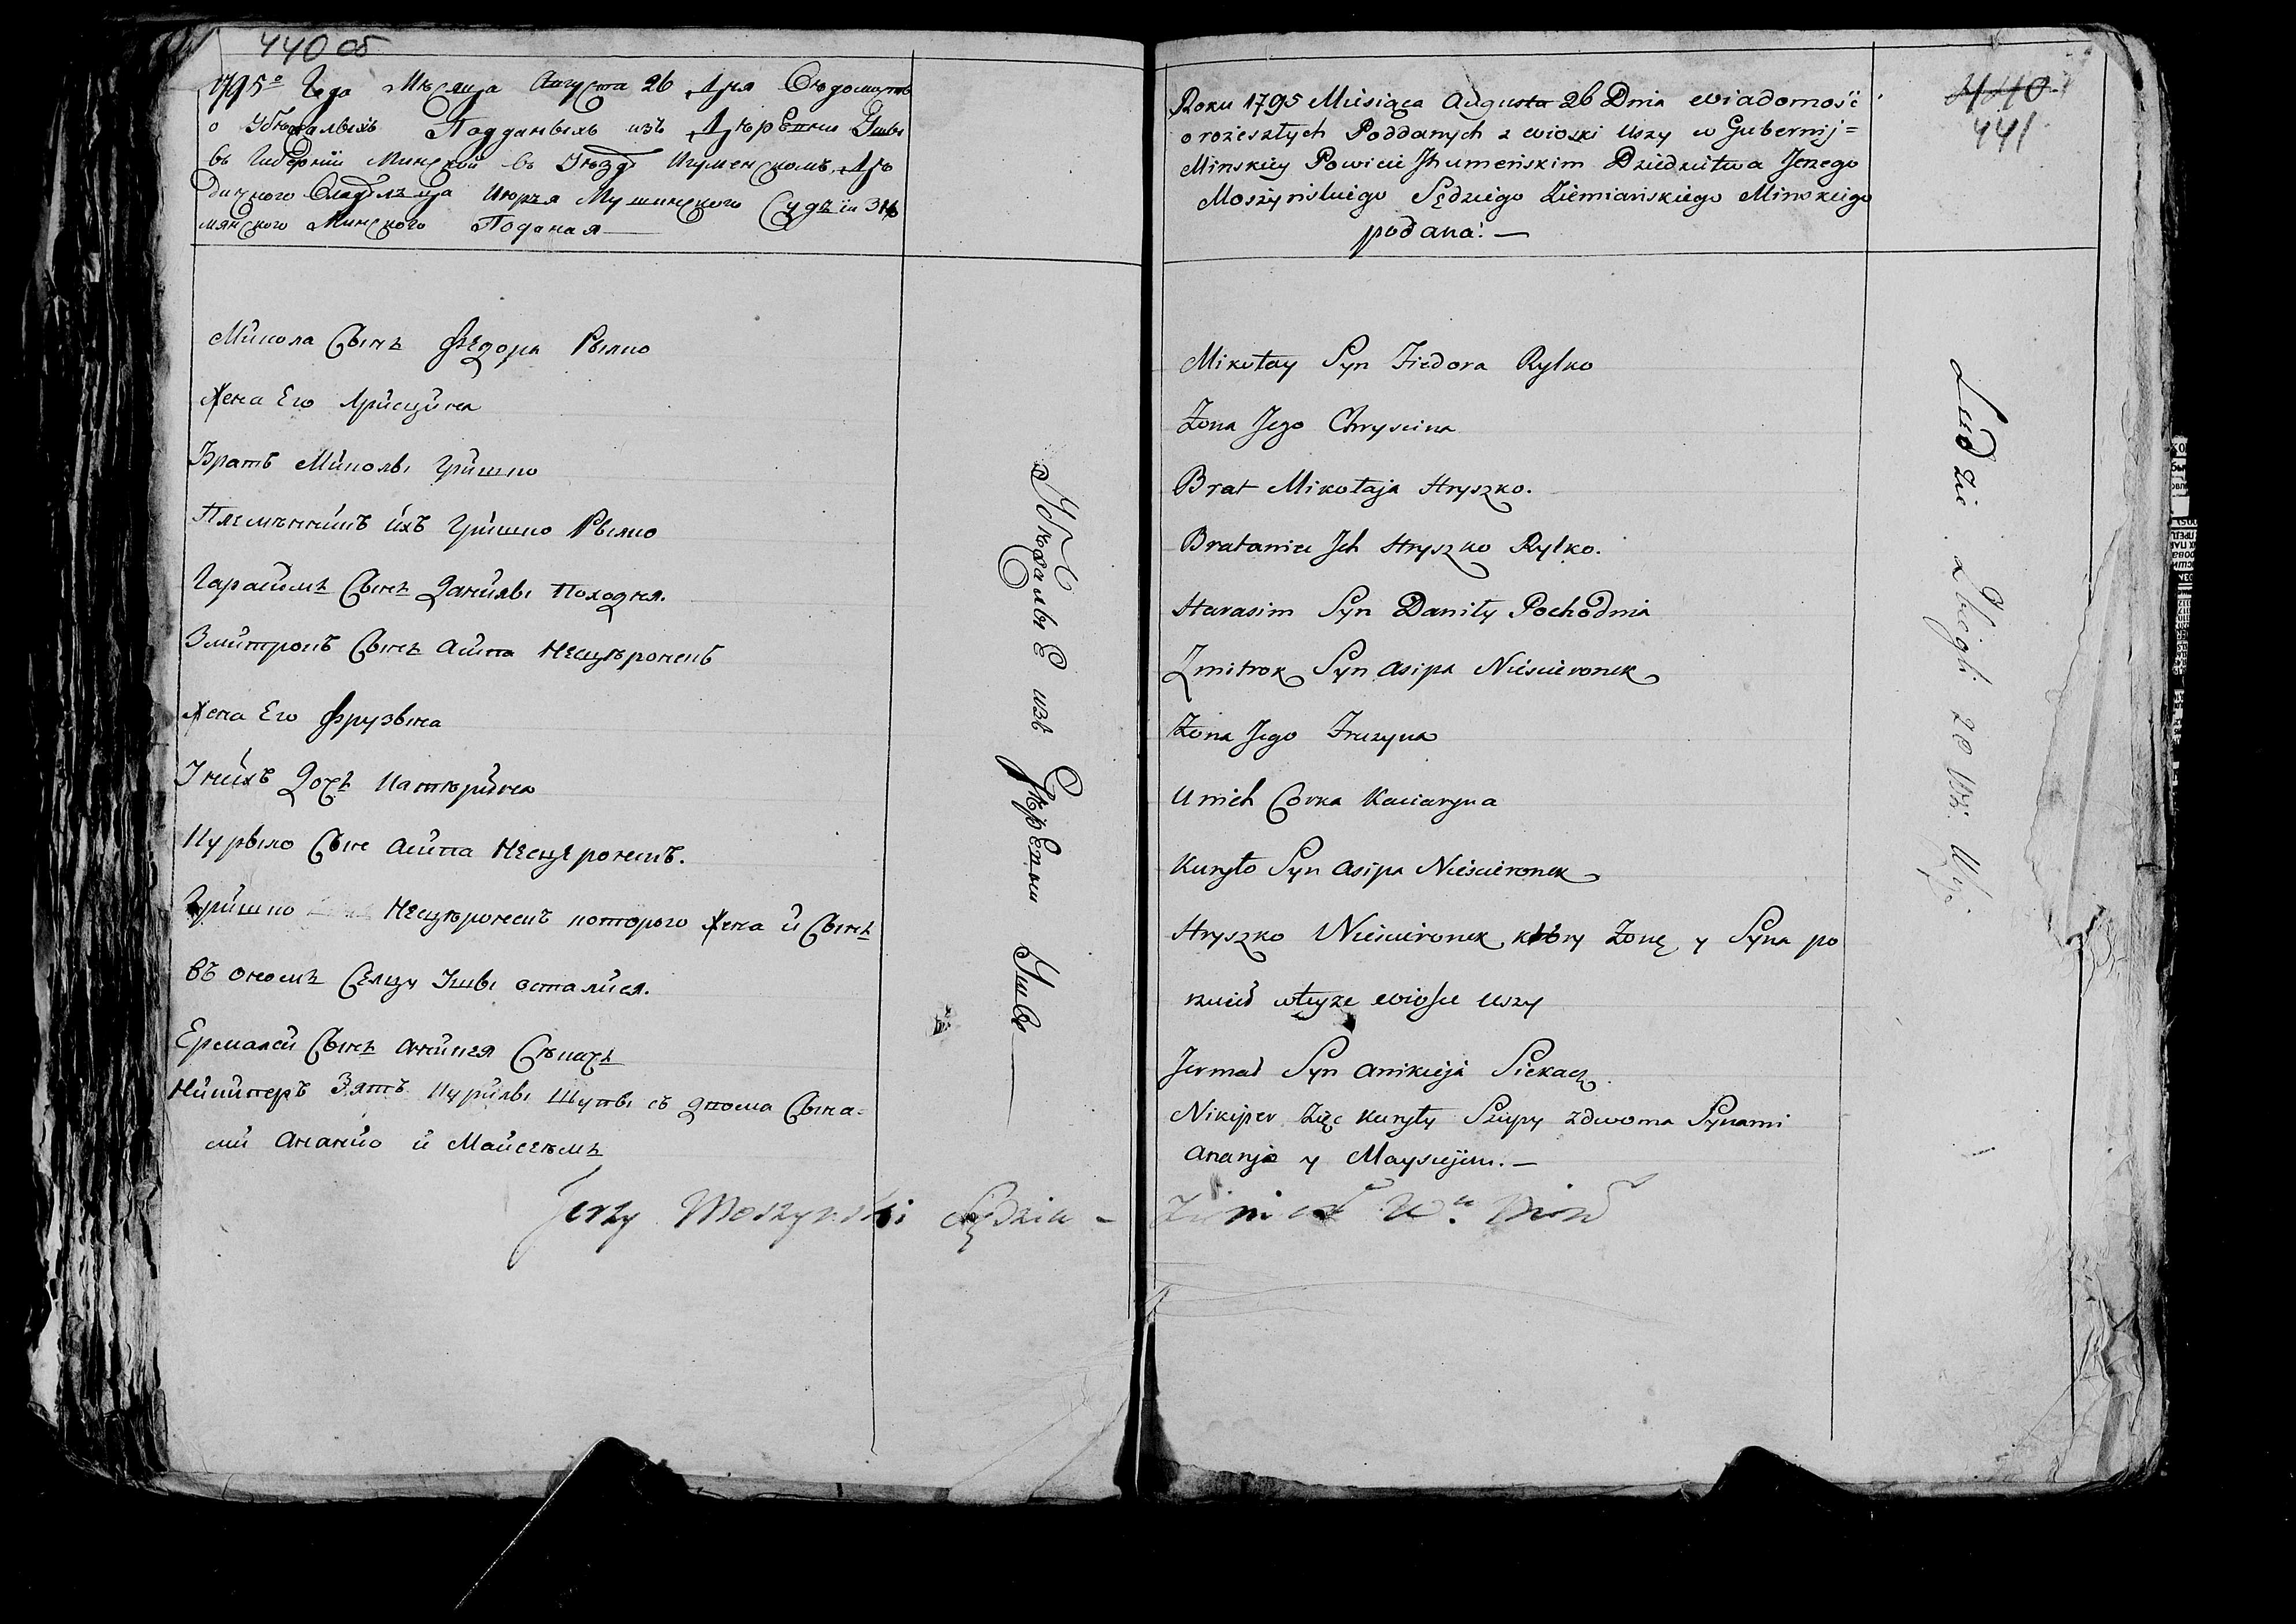 440 об
1795го Года Мѣсяца Августа 26 Дня Вѣдомость
о Убѣжалыхъ Подданыхъ изъ Дѣревни Ушы
въ Губерніи Минской въ Уѣздѣ Игуменскомъ Дѣ
дичного Владѣльца Июръя Мушинского Судъіи Зѣ
мянского Минского Поданая
Микола Сынъ Федора Рылко
Жена Его Хрисцина
Братъ Миколы Гришко
Племѣнникъ ихъ Гришко Рылко
Гарасимъ Сынъ Данилы Походня.
Змитрокъ Сынъ Асипа Несцѣронекъ
Жена Его Фрузына
У нихъ Дочъ Катѣрина
Курыло Сынъ Асипа Несцеронекъ.
Гришко Несцѣронекъ которого Жена и Сынъ
въ ономъ Селцу Ушы осталися.
Ермалей Сынъ Аникея Сѣкачъ
Никиперъ Зять Курилы Шупы съ двома Сына=
ми Ананию и Майсеѣмъ
Убѣжалыя изъ Дѣревни Ушы
Jerzy Moszynski Sędzia - Ziemia
440
441
Roku 1795 Miesiąca Augusta 26 Dnia wiadomość
o rozeszłych Poddanych z wioski Uszy w Gubernij=
Minskiey Powicie Jhumeńskim Dziedzitwa Jerzego
Moszynskiego Sędziego Ziemiańskiego Minskiego
podana: —
Mikołay Syn Fiedora Rylko
Żona Jego Chryscina
Brat Mikołaja Hryszko.
Brataniec Jch Hryszko Rylko.
Harasim Syn Daniły Pochodnia
Zmitrok Syn Asipa Nieścieronek
Żona Jego Fruzyna
U nich Corka Kaciaryna
Kuryło Syn Asipa Nieścieronek
Hryszko Nieścieronek, ktory Żonę y Syna po
rzucił wteyże wiosce Uszy
Jermał Syn Anikieja Siekacz.
Nikiper Zięć Kuryły Szupy zdwoma Synami
Ananją y Maysiejem. —
Ludzie Zbiegli